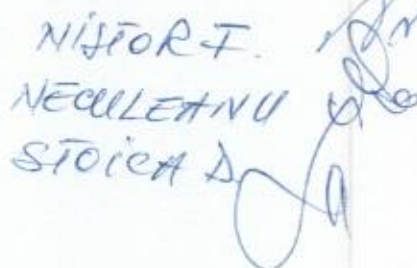 NISTOR F.
NECULEANU
STOICA D